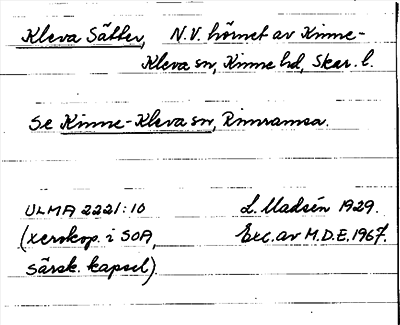 Kleva Sätter, N.V. hörnet av Kinne-
Kleva sn, Kinne hd, Skar. l.
Se Kinne-Kleva sn, Rimramsa.
ULMA 2221:10 L. Uladsén 1929.
(xerokop. i SOA, Exc. av M.D.E. 1967.
särsk. kapsel).